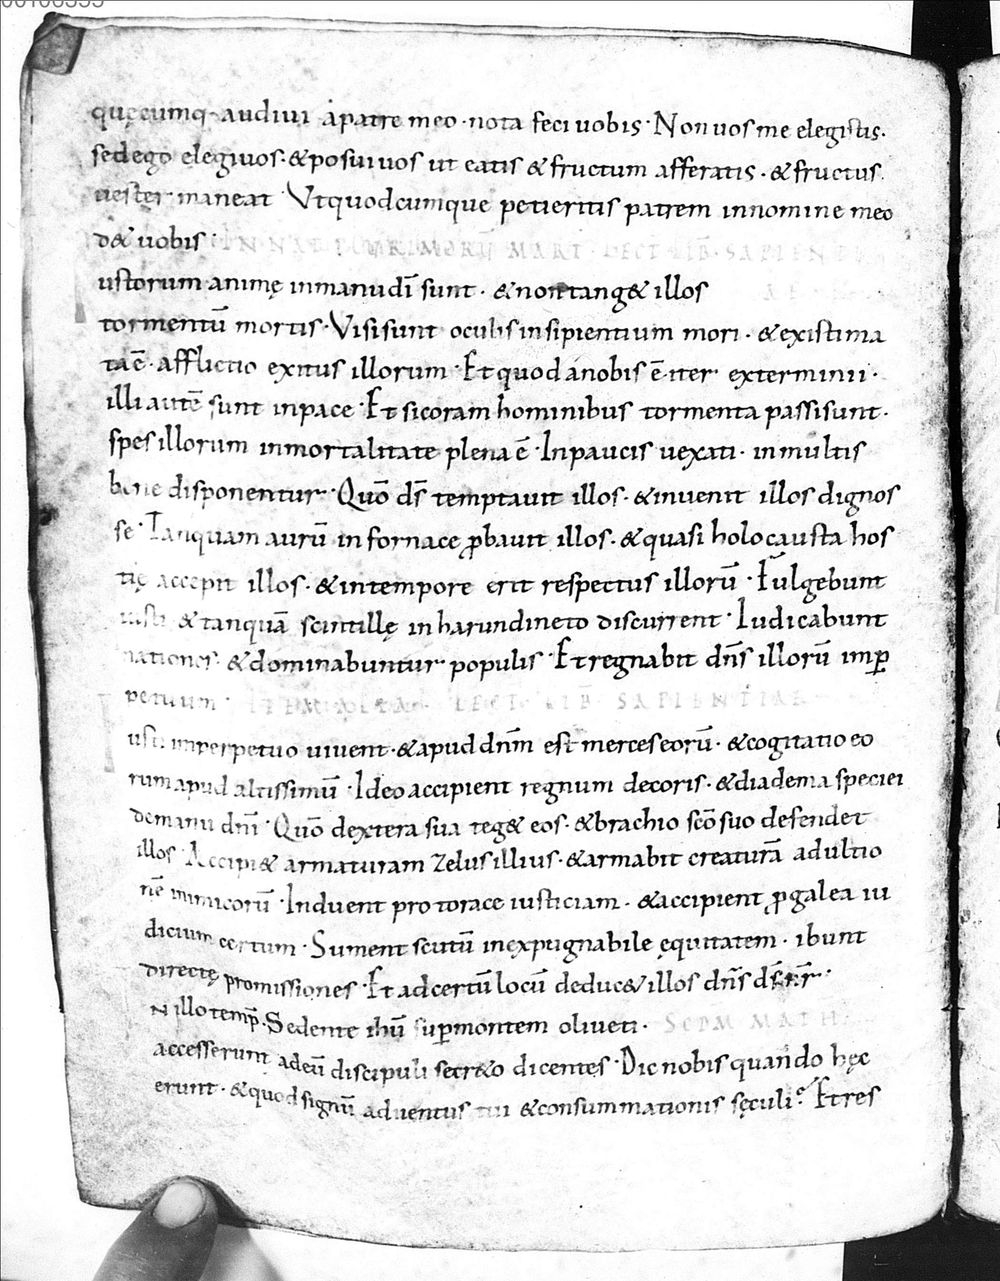 00106355
quęcumq· audiui apatre meo · nota feci uobis · Non uos me elegistis·
sedego elegiuos · & posui uos ut eatis & fructum afferatis · & fructus
uester maneat · Vtquodcumque petieritis patrem innomine meo
d& uobis · IN NAT PLURIMORŪ MART · LECT LIB̄ · SAPIENT
ustorum animę inmanudī sunt · & non tang& illos
tormentū mortis · Visisunt oculis insipientium mori · & existima
taē · afflictio exitus illorum · Et quod anobis ē iter exterminii ·
illi autē sunt inpace · Et sicoram hominibus tormenta passisunt ·
spes illorum inmortalitate plena ē · Inpaucis uexati · inmultis
bene disponentur · Quō ds̄ temptauit illos · & inuenit illos dignos
se · Tanquam aurū in fornace ꝓbauit illos · & quasi holocausta hos
tię accepit illos · & intempore erit respectus illorū · Fulgebunt
iusti & tanquā scintillę in harundineto discurrent · Iudicabunt
nationes · & dominabuntur populis · Et regnabit dn̄s illorū imꝑ
petuum · ITEM ALIA · LECT · LIB̄ · SAPIENTIAE
usti inperpetuo uiuent · & apud dnm̄ est merces eorū · & cogitatio eo
rum apud altissimū · Ideo accipient regnum decoris · & diadema speciei
demanu dnī · Quō dextera sua teg& eos · & brachio scō suo defendet
illos · Accipi& armaturam zelus illius · & armabit creaturā adultio
nē inimicorū · Induent pro torace iusticiam · & accipient ꝓ galea iu
dicium certum · Sument scutū inexpugnabile ęquitatem · ibunt
directę promissiones · Et adcertū locū deduc& illos dn̄s ds̄ nr̄ ·
N illo temꝑ · Sedente ihū suꝑ montem oliueti · SCDM MATH
accesserunt adeū discipuli secr&o dicentes · Dic nobis quando hęc
erunt · & quod signū aduentus tui & consummationis sęculi? Et res